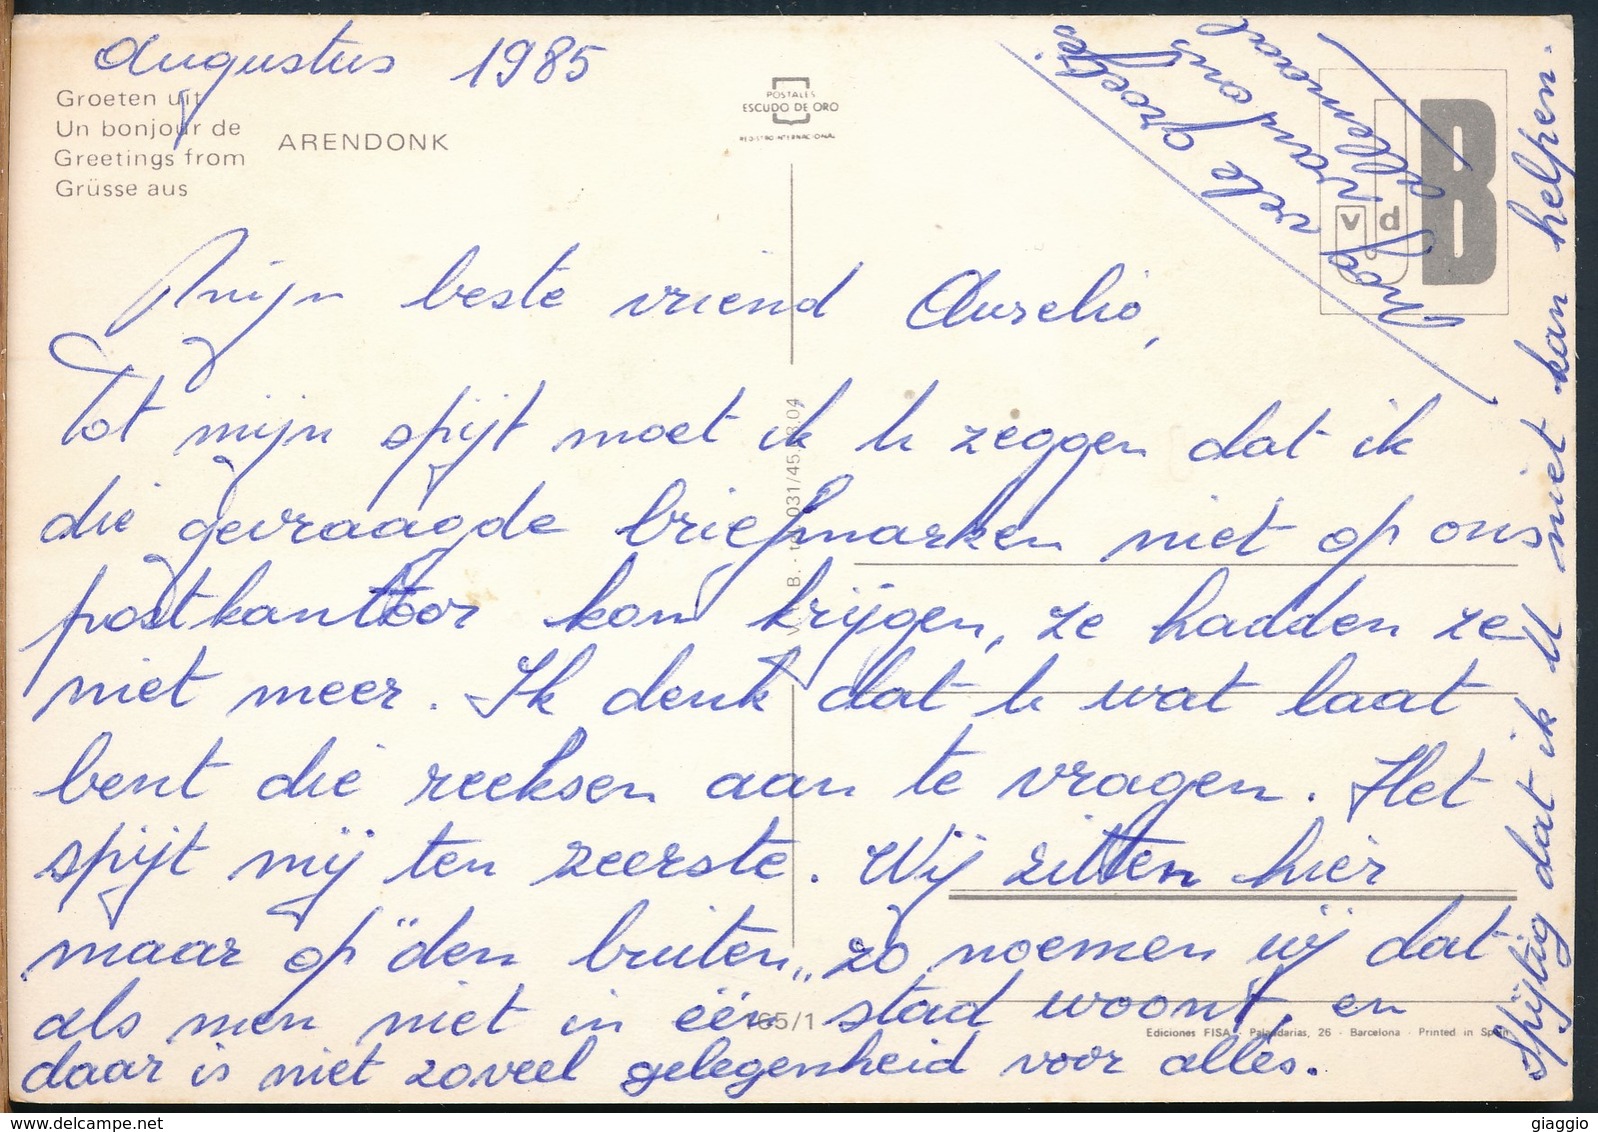 Augustus 1985
Groeten uit
Un bonjour de
Greetings from
Grüsse aus
ARENDONK
POSTALES
ESCUDO DE ORO
REGISTRO INTERNACIONAL
B
v d
Nog vele groetjes
van ons
allemaal
Mijn beste vriend Aurelio,
Tot mijn spijt moet ik U zeggen dat ik
die gevraagde briefmarken niet op ons
postkantoor kon krijgen, ze hadden ze
niet meer. Ik denk dat U wat laat
bent die reeksen aan te vragen. Het
spijt mij ten zeerste. Wij zitten hier
maar op "den buiten" zo noemen wij dat
als men niet in één stad woont, en
daar is niet zoveel gelegenheid voor alles.
Spijtig dat ik U niet kan helpen.
165/1
Ediciones FISA - Palaudarias, 26 - Barcelona - Printed in Spain
delcampe.net
giaggio